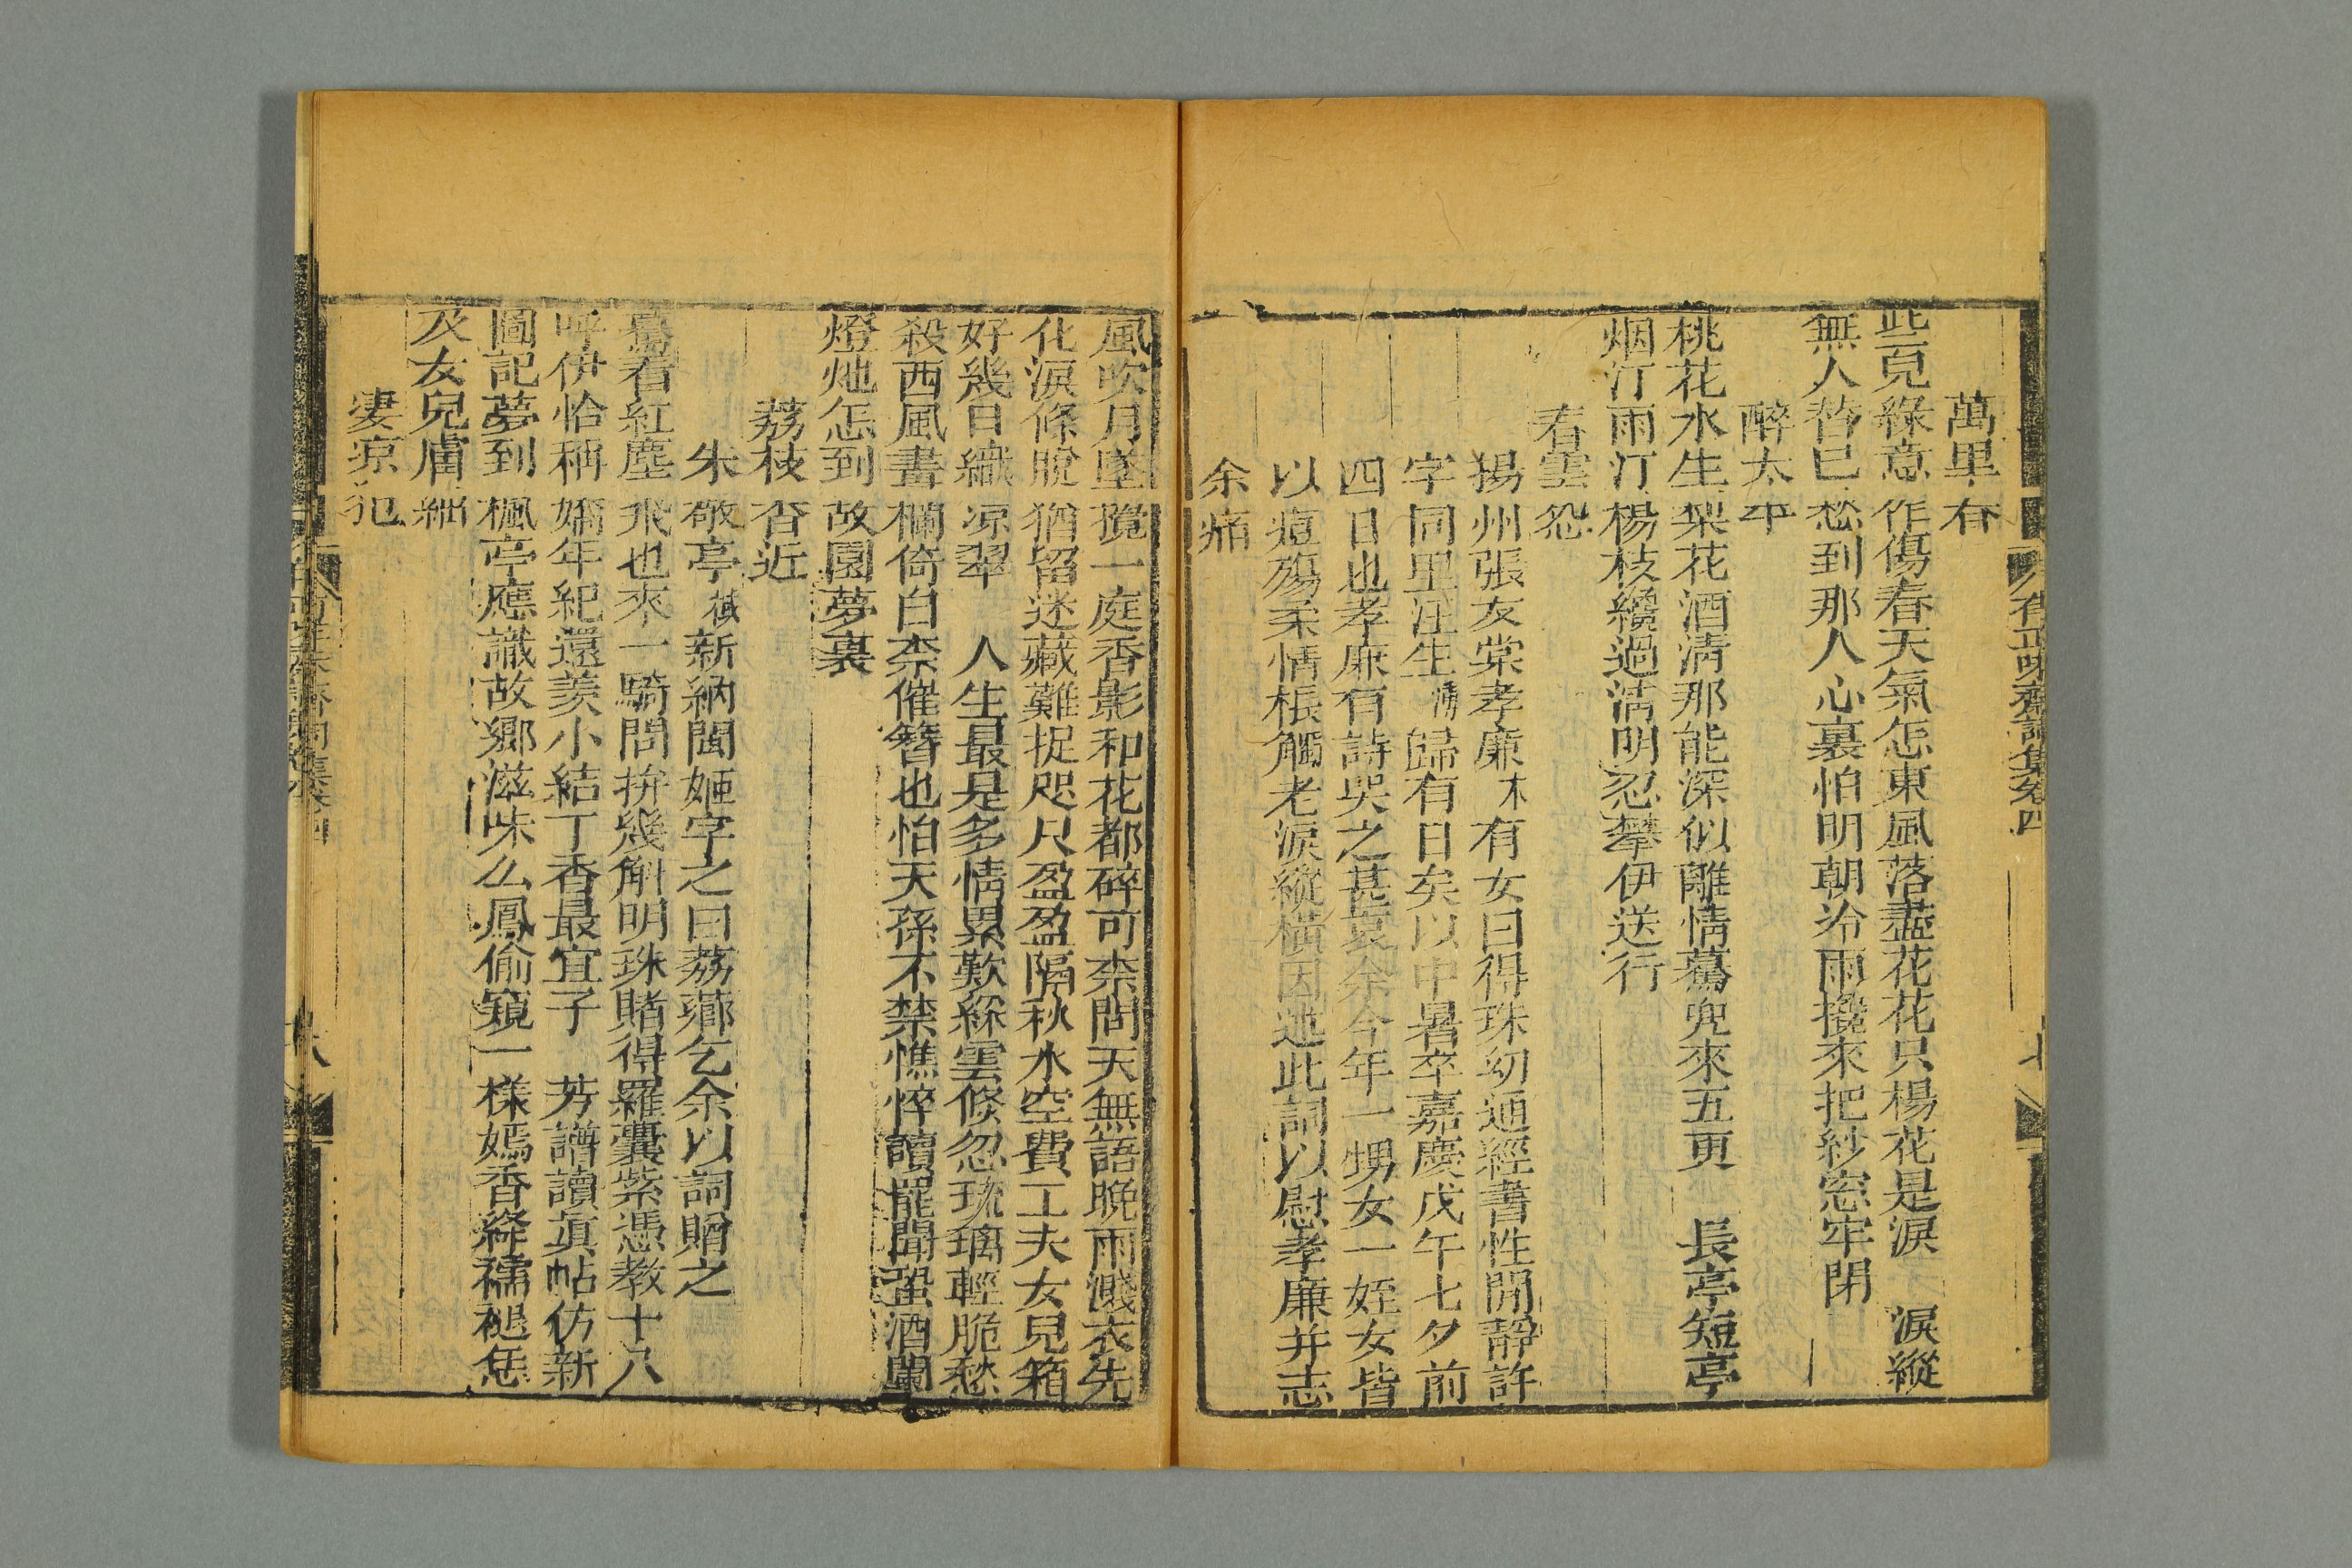 有正味齋詞集卷四
萬里春
些見綠意作傷春天氣怎東風落盡花花只楊花是淚　淚縱
無人替已愁到那人心裏怕明朝冷雨攙來把紗窓牢閉
醉太平
桃花水生梨花酒淸那能深似離情驀兜來五更　長亭短亭
烟汀雨汀楊枝纔過淸明忍攀伊送行
春雲怨
揚州張友棠孝廉木有女曰得珠幼通經書性閒靜許
字同里汪生歸有日矣以中暑卒嘉慶戊午七夕前
四日也孝廉有詩哭之甚哀余今年一甥女一姪女皆
以痘殤柔情棖觸老淚縱橫因述此詞以慰孝廉并志
余痛
風吹月墜攪一庭香影和花都碎可柰問天無語晚雨濺衣先
化淚條脫猶留迷藏難捉咫尺盈盈隔秋水空費工夫女兒箱
好幾日織凉翠　人生最是多情累歎綵雲倐忽琉璃輕脆愁
殺西風畫欄倚白柰催簪也怕天孫不禁憔悴讀罷聞蛩酒闌
燈灺怎到故園夢裏
荔枝香近
朱敬亭新納閩姬字之曰荔薌乞余以詞贈之
驀看紅塵飛也來一騎問拚幾斛明珠賭得羅囊紫憑敎十八
呼伊恰稱嬌年紀還羨小結丁香最宜子　芳譜讀眞帖仿新
圖記夢到楓亭應識故鄉滋味么鳳偷窺一樣嫣香絳襦褪恁
及女兒膚細
凄凉犯